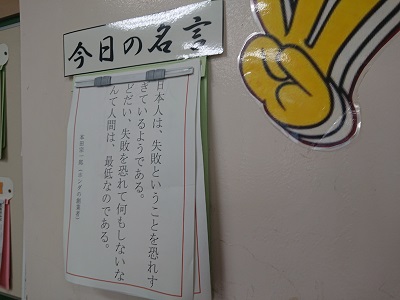 今日の名言
日本人は、失敗ということを恐れす
ぎているようである。
どだい、失敗を恐れて何もしないな
んて人間は、最低なのである。
本田宗一郎（ホンダの創業者）